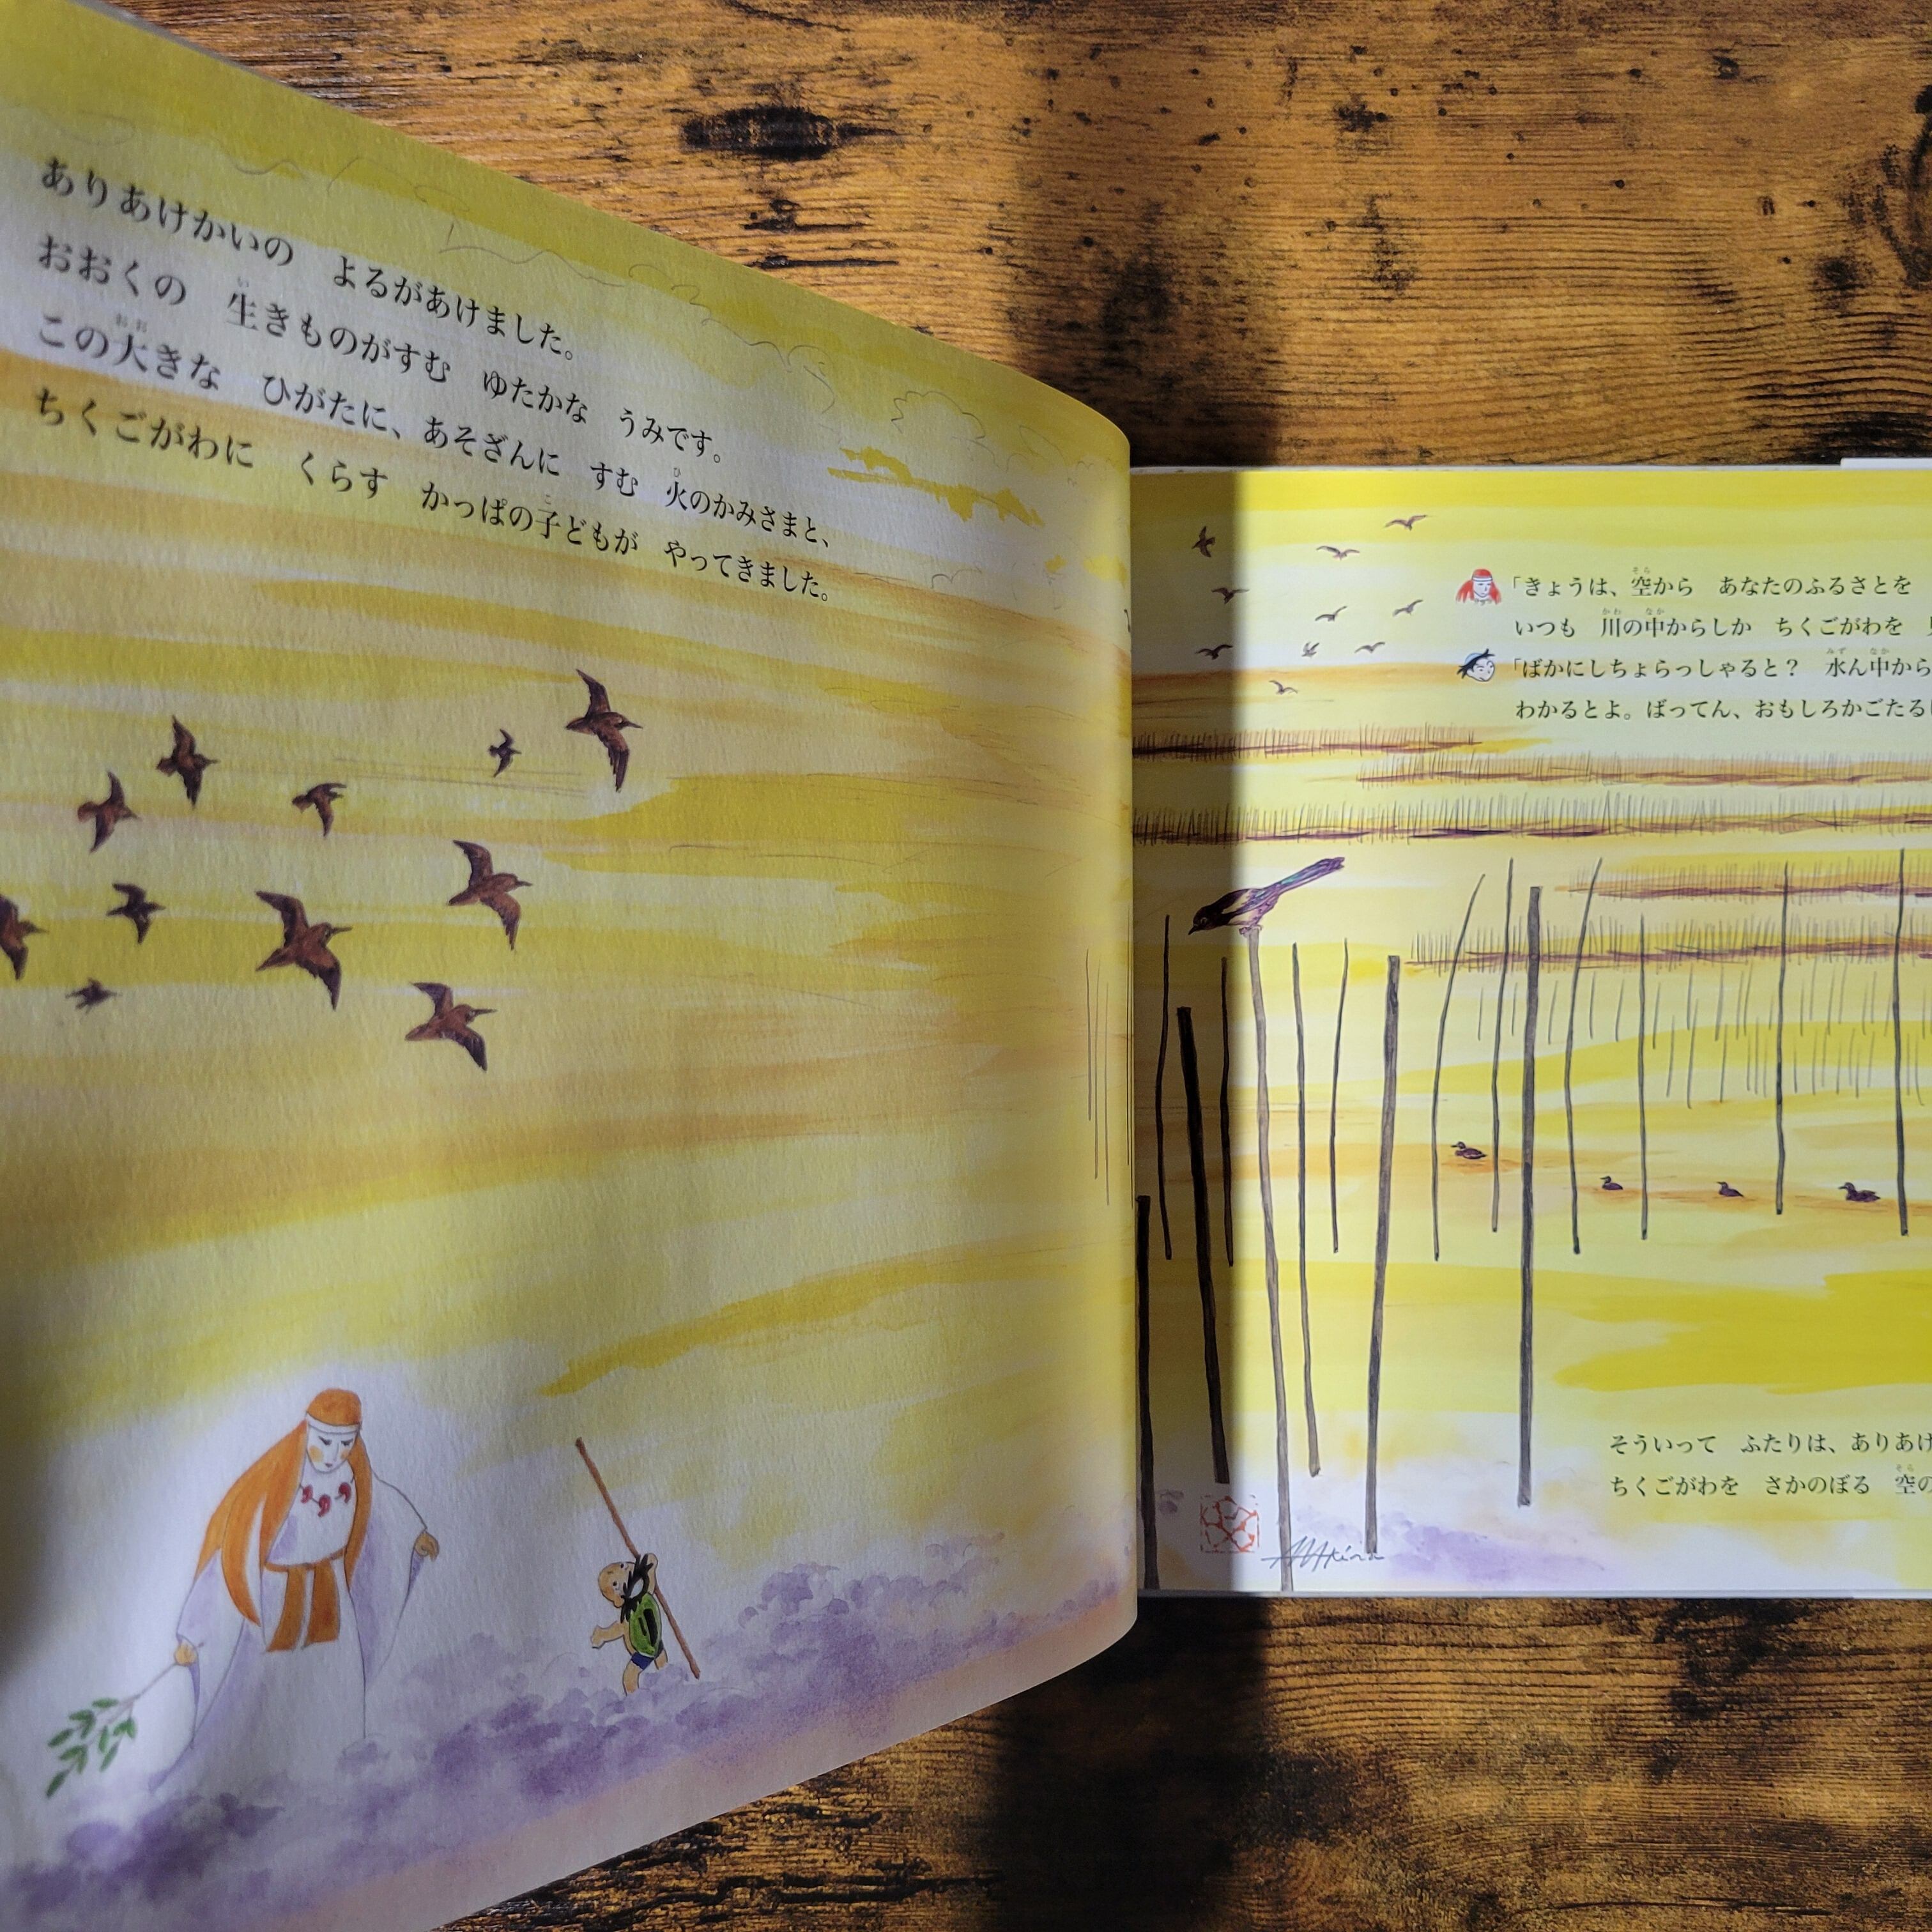 ありあけかいの　よるがあけました。
おおくの　生きものがすむ　ゆたかな　うみです。
この大きな　ひがたに、あそざんに　すむ　火のかみさまと、
ちくごがわに　くらす　かっぱの子どもが　やってきました。
「きょうは、空から　あなたのふるさとを
いつも　川の中からしか　ちくごがわを
「ばかにしちょらっしゃると？　水ん中から
わかるとよ。ばってん、おもしろかごたる
そういって　ふたりは、ありあけ
ちくごがわを　さかのぼる　空の